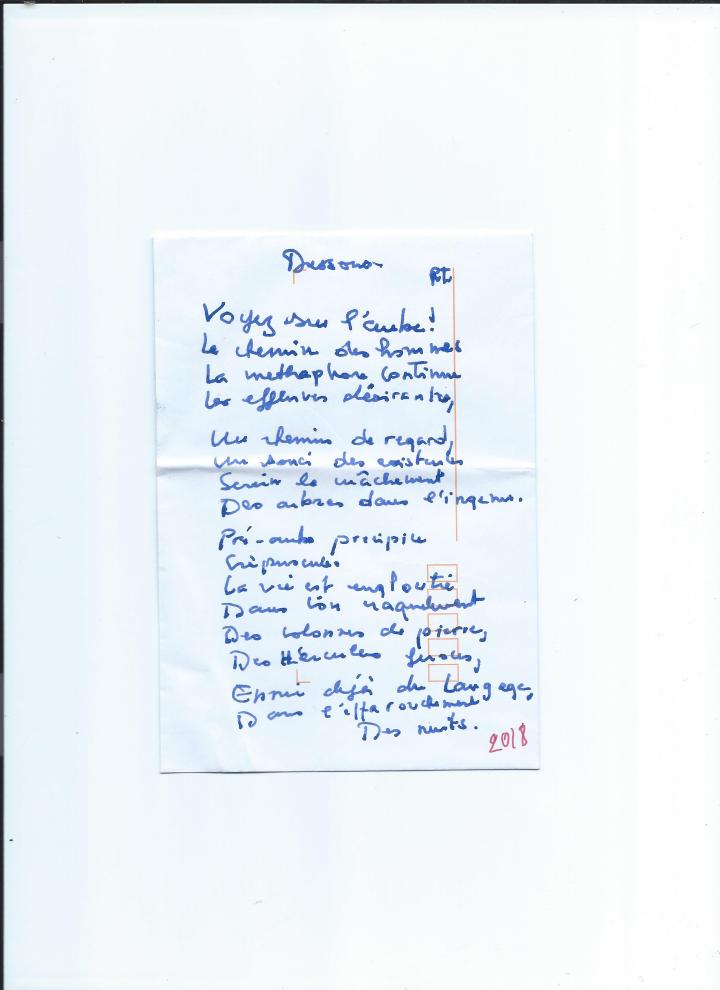 Dessous
Voyez sur l'aube!
Le chemin des hommes
La methaphore continue
Les effluves désirantes,
Un chemin de regard,
Un souci des existules
Serein le mâchement
Des arbres dans l'ingénu.
Pré-aube précipice
Crépuscules
La vie est engloutie
Dans l'
Des colonnes de pierre,
Des Hercules féroces,
Epris déjà du langage,
Dans l'effarouchement
Des nuits.
2018